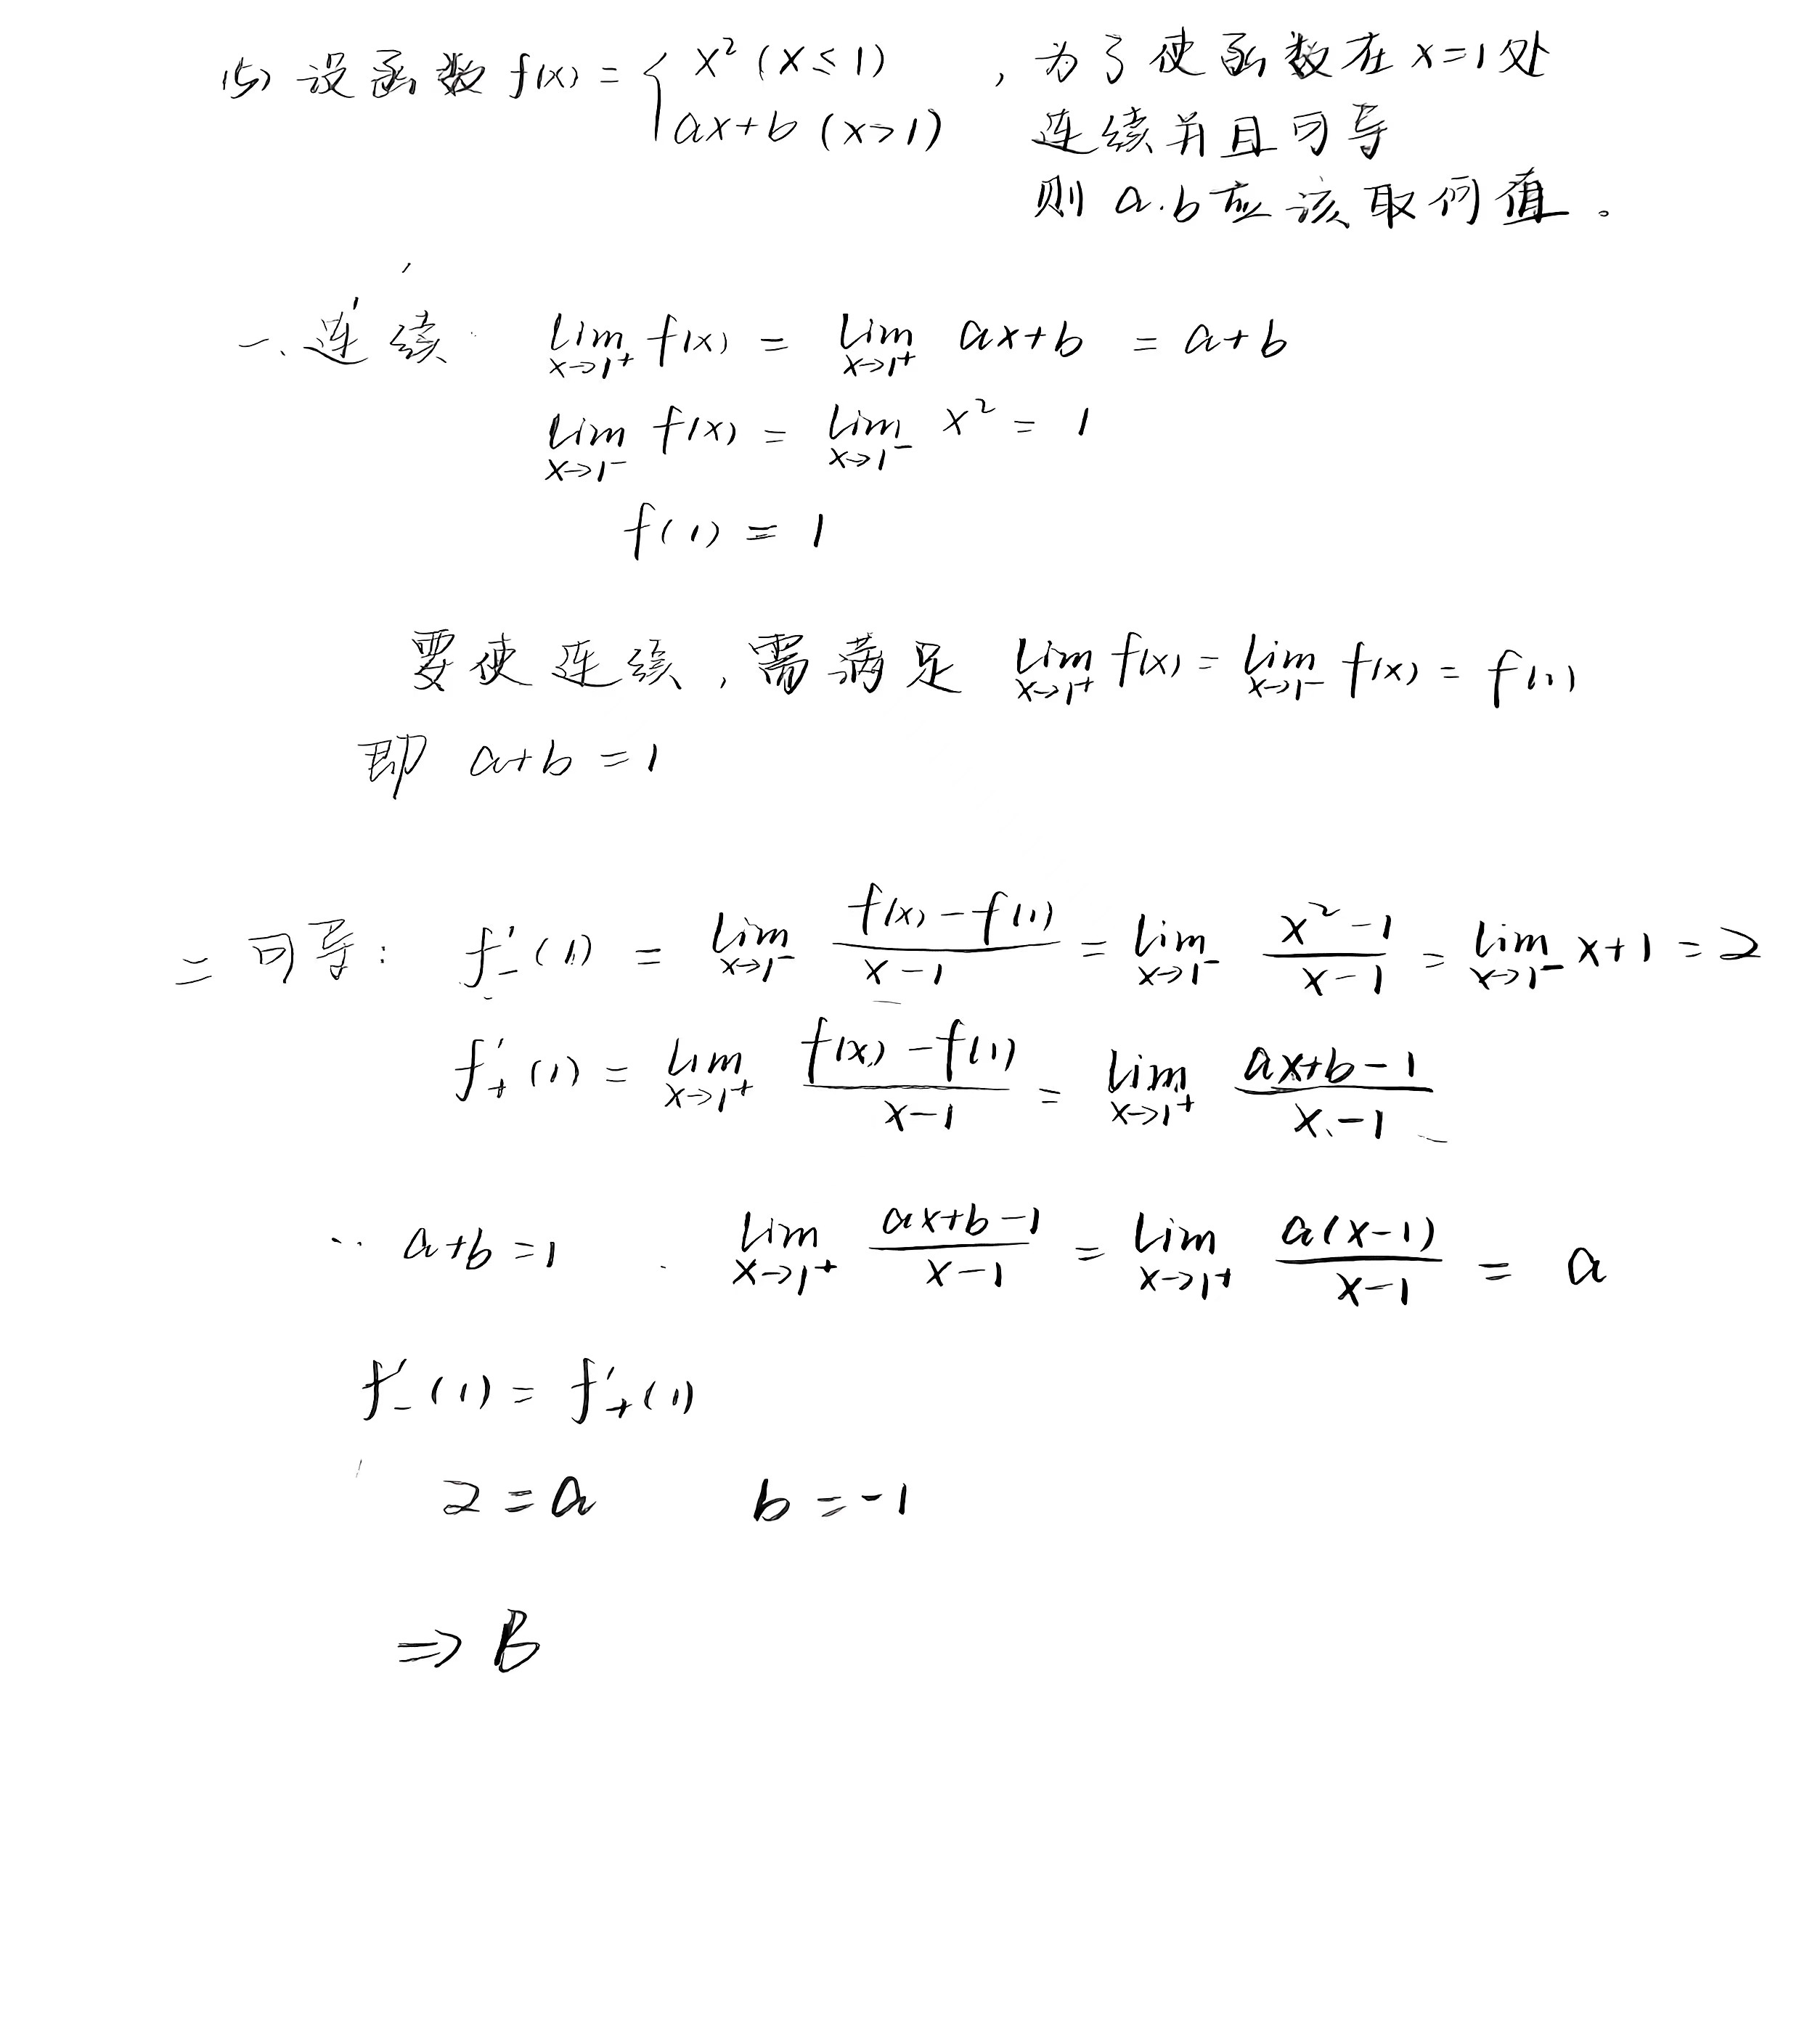 (5) 设函数 f(x) = { x² (x ≤ 1) , 为了使函数在 x=1 处
ax+b (x>1) 连续并且可导
则 a.b 应该取何值。
一、连续 lim_{x→1⁺} f(x) = lim_{x→1⁺} ax+b = a+b
lim_{x→1⁻} f(x) = lim_{x→1⁻} x² = 1
f(1) = 1
要使连续,需满足 lim_{x→1⁺} f(x) = lim_{x→1⁻} f(x) = f(1)
即 a+b = 1
二 可导: f'₋(1) = lim_{x→1⁻} (f(x)-f(1))/(x-1) = lim_{x→1⁻} (x²-1)/(x-1) = lim_{x→1⁻} x+1 = 2
f'₊(1) = lim_{x→1⁺} (f(x)-f(1))/(x-1) = lim_{x→1⁺} (ax+b-1)/(x-1)
∵ a+b=1 lim_{x→1⁺} (ax+b-1)/(x-1) = lim_{x→1⁺} (a(x-1))/(x-1) = a
f'₋(1) = f'₊(1)
2 = a b = -1
⇒ B